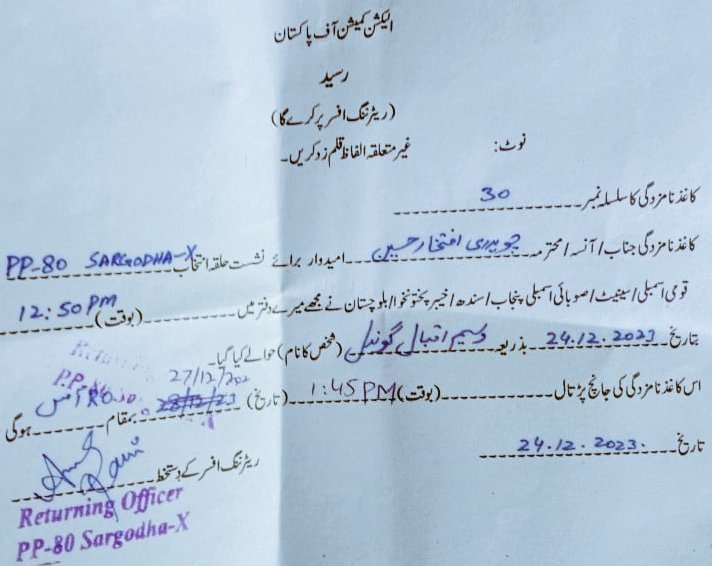 الیکشن کمیشن آف پاکستان
رسید
(ریٹرننگ افسر پر کرے گا)
نوٹ: غیر متعلقہ الفاظ قلم زد کریں۔
کاغذ نامزدگی کا سلسلہ نمبر 30
کاغذ نامزدگی جناب/آنسہ/محترمہ چوہدری افتخار حسین امیدوار برائے نشست حلقہ انتخاب PP-80 SARGODHA-X
قومی اسمبلی/سینیٹ/صوبائی اسمبلی پنجاب/سندھ/خیبر پختونخوا/بلوچستان نے مجھے میرے دفتر میں (بوقت) 12:50 PM
بتاریخ 24.12.2023 بذریعہ وسیم اقبال گوندل (شخص کا نام) حوالے کیا گیا۔
27/12/202
اس کاغذ نامزدگی کی جانچ پڑتال (بوقت) 1:45 PM (تاریخ) 28/12/23 بمقام RO آفس ہوگی
تاریخ 24.12.2023.
ریٹرننگ افسر کے دستخط
Returning Officer
PP-80 Sargodha-X